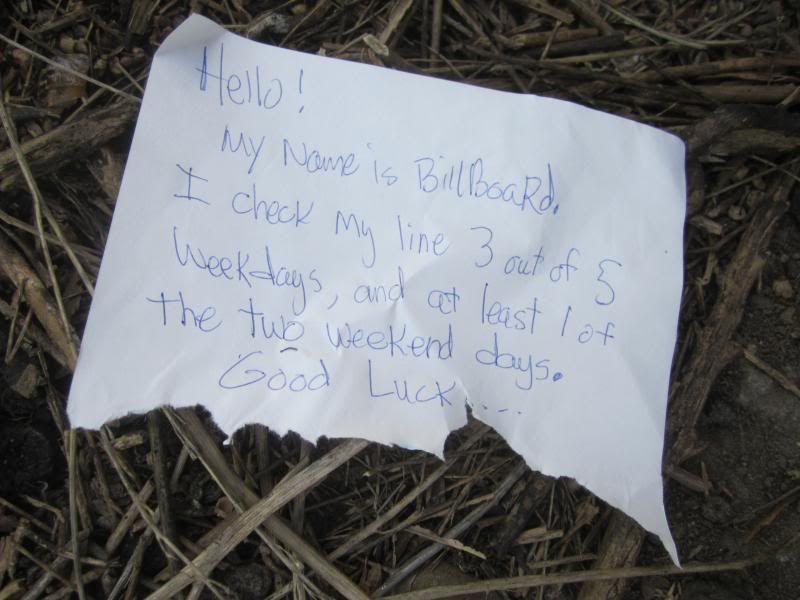 Hello!
My Name is BillBoaRd.
I check my line 3 out of 5
weekdays, and at least 1 of
the two weekend days.
Good Luck....